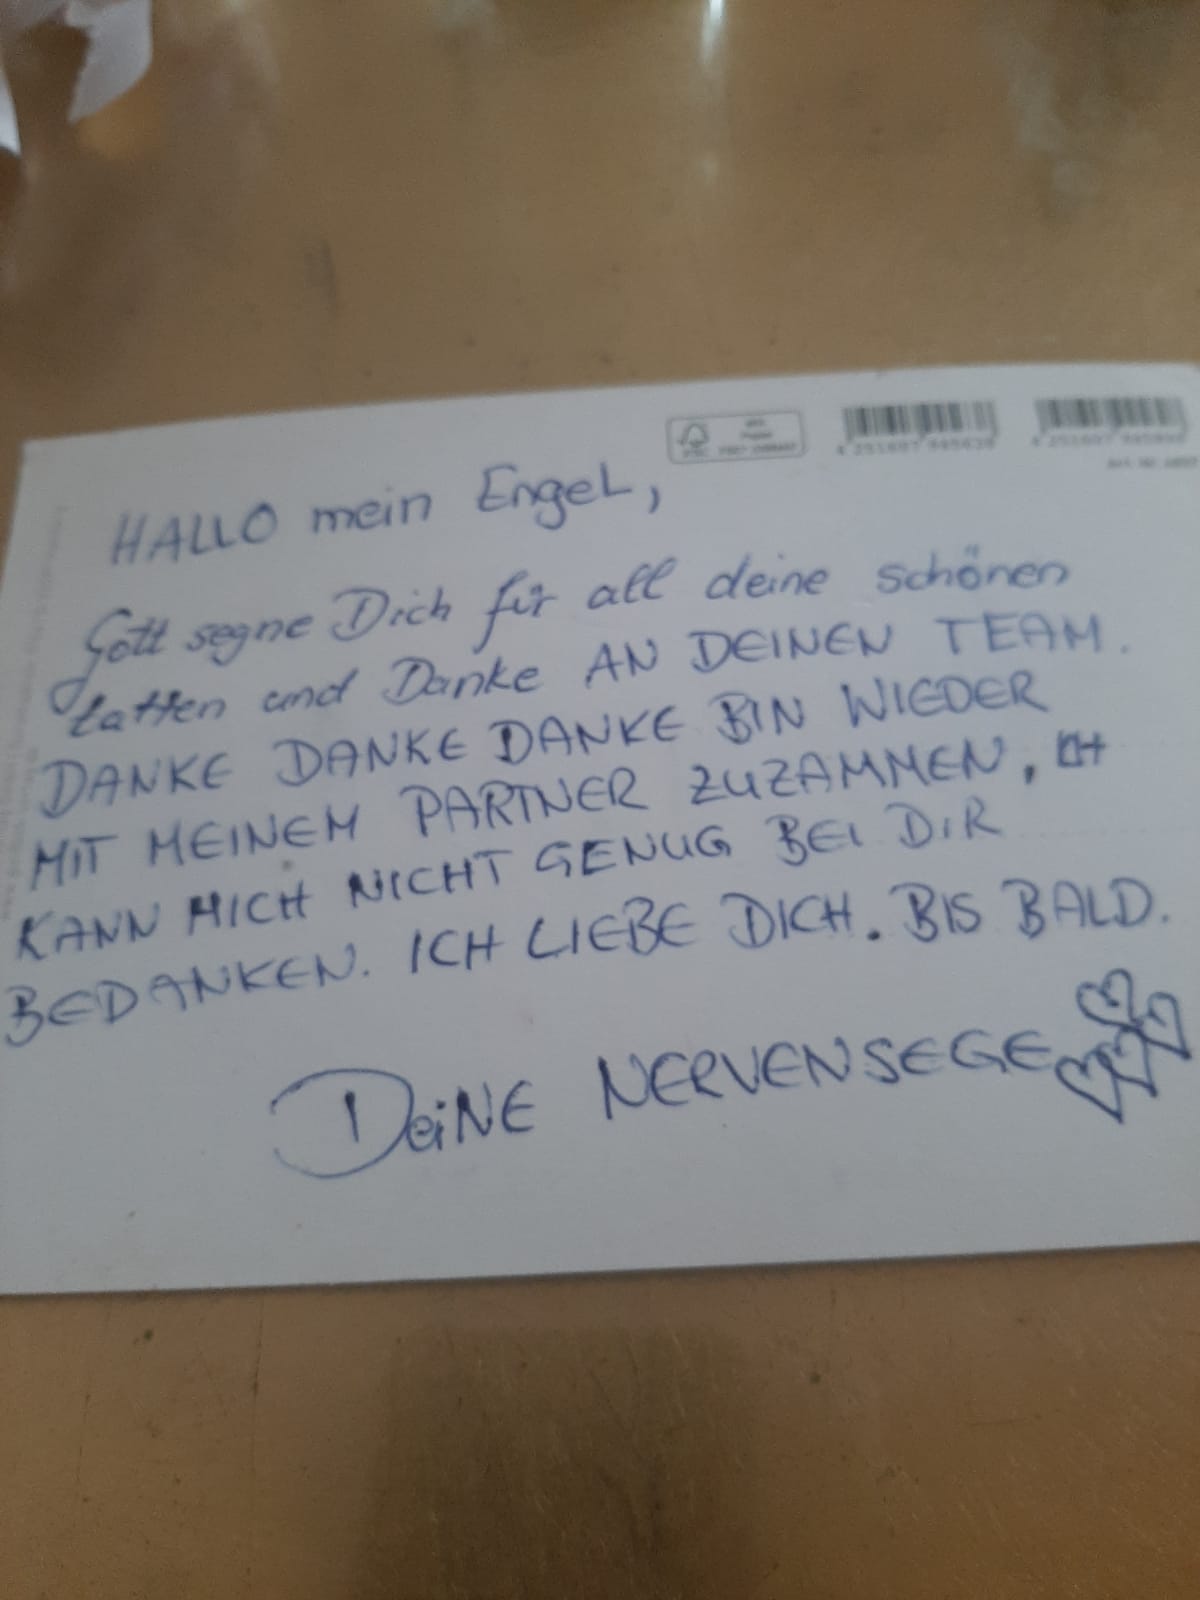 HALLO mein Engel,
Gott segne Dich für all deine schönen
tatten und Danke AN DEINEN TEAM.
DANKE DANKE DANKE BIN WIEDER
MIT MEINEM PARTNER ZUZAMMEN,
KANN MICH NICHT GENUG BEI DIR
BEDANKEN. ICH LIEBE DICH. BIS BALD.
DEiNE NERVENSEGE